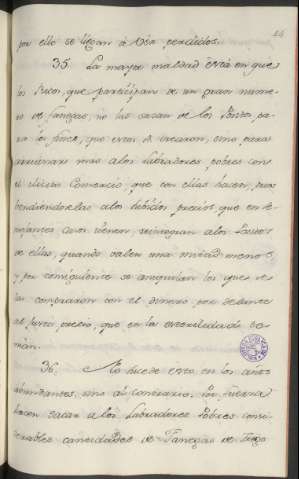 por ello se llegan à Ver perdidos.
35. La mayor maldad està en que
los Ricos, que participan de un gran nume-
ro de fanegas, no las sacan de los Positos pa-
ra los fines, que estos se crearon, sino para
arruinar mas a los Labradores pobres con
el ilicito Comercio, que con ellas hacen, pues
bendiendoselas a los subidos precios que en se-
mejantes casos tienen, reintegran a los Positos
de ellas, quando valen una mitad menos,
y por consiguiente se aniquilan los que se
las compraron con el dinero por delante
al justo precio, que en los
36. No sucede esto en los años
abundantes, sino al contrario. Por fuerza
hacen sacar a los Labradores Pobres consi-
derables cantidades de Fanegas de Trigo